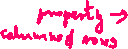 property →
columned rows